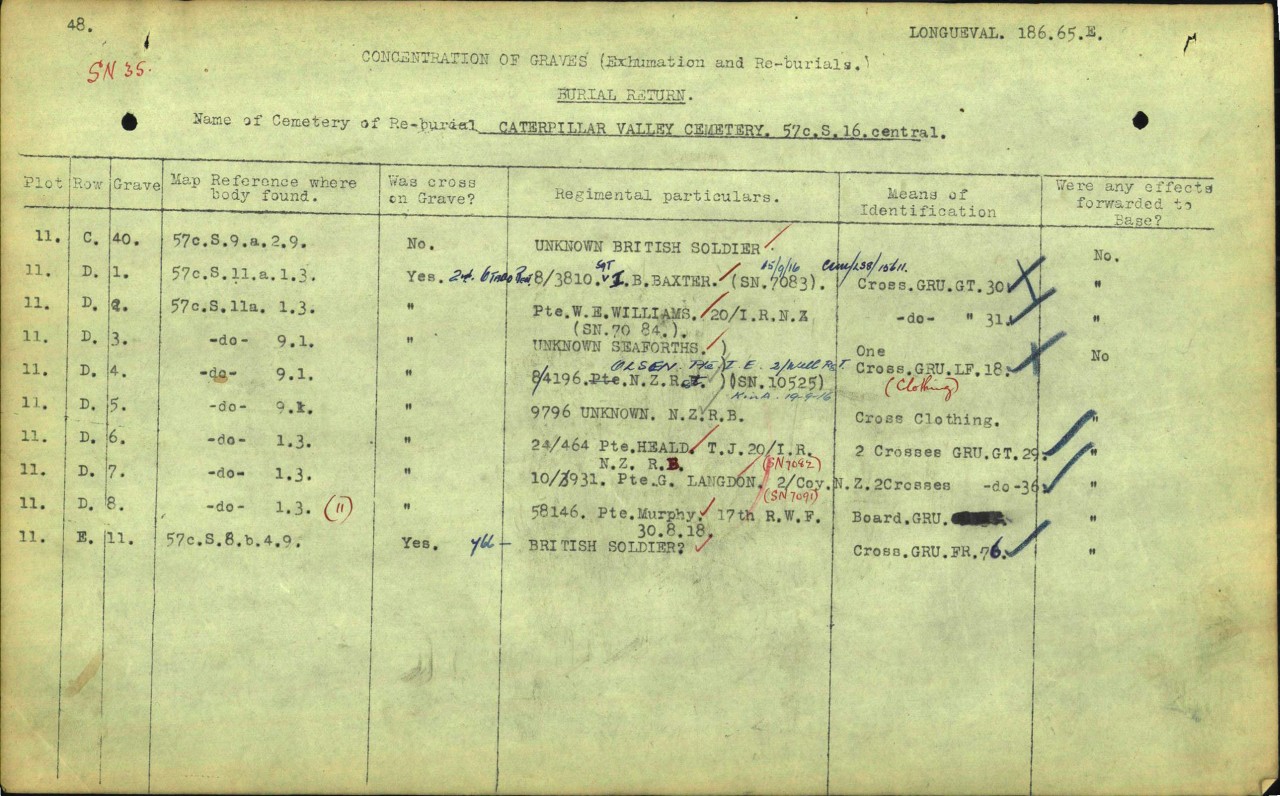 48.
LONGUEVAL. 186.65.E.
SN 35.
CONCENTRATION OF GRAVES (Exhumation and Re-burials.)
BURIAL RETURN.
Name of Cemetery of Re-burial CATERPILLAR VALLEY CEMETERY. 57c.S.16.central.
Plot Row Grave Map Reference where body found. Was cross on Grave? Regimental particulars. Means of Identification Were any effects forwarded to Base?
11. C. 40. 57c.S.9.a.2.9. No. UNKNOWN BRITISH SOLDIER No.
15/9/16
11. D. 1. 57c.S.11.a.1.3. Yes. 2nd. Otago Regt. 8/3810. SGT I.B.BAXTER. (SN.7083). Cross.GRU.GT.30. "
11. D. 2. 57c.S.11a. 1.3. " Pte.W.E.WILLIAMS. 20/I.R.N.Z -do- " 31. "
(SN.70 84.).
11. D. 3. -do- 9.1. " UNKNOWN SEAFORTHS. ) One No
OLSEN. Pte. T. E. 2/Well Rgt.
11. D. 4. -do- 9.1. " 8/4196. Pte.N.Z.R )(SN.10525) Cross.GRU.LF.18.
(Clothing)
KinA. 19-9-16
11. D. 5. -do- 9.1. " 9796 UNKNOWN. N.Z.R.B. Cross Clothing. "
11. D. 6. -do- 1.3. " 24/464 Pte.HEALD. T.J. 20/I.R. 2 Crosses GRU.GT.29. "
N.Z. R.B. (SN7082)
11. D. 7. -do- 1.3. " 10/3931. Pte.G. LANGDON. 2/Coy.N.Z. 2Crosses -do-36. "
(SN7091)
11. D. 8. -do- 1.3. (11) 58146. Pte.Murphy. 17th R.W.F. Board.GRU. "
30.8.18.
11. E. 11. 57c.S.8.b.4.9. Yes. BRITISH SOLDIER? Cross.GRU.FR.76. "